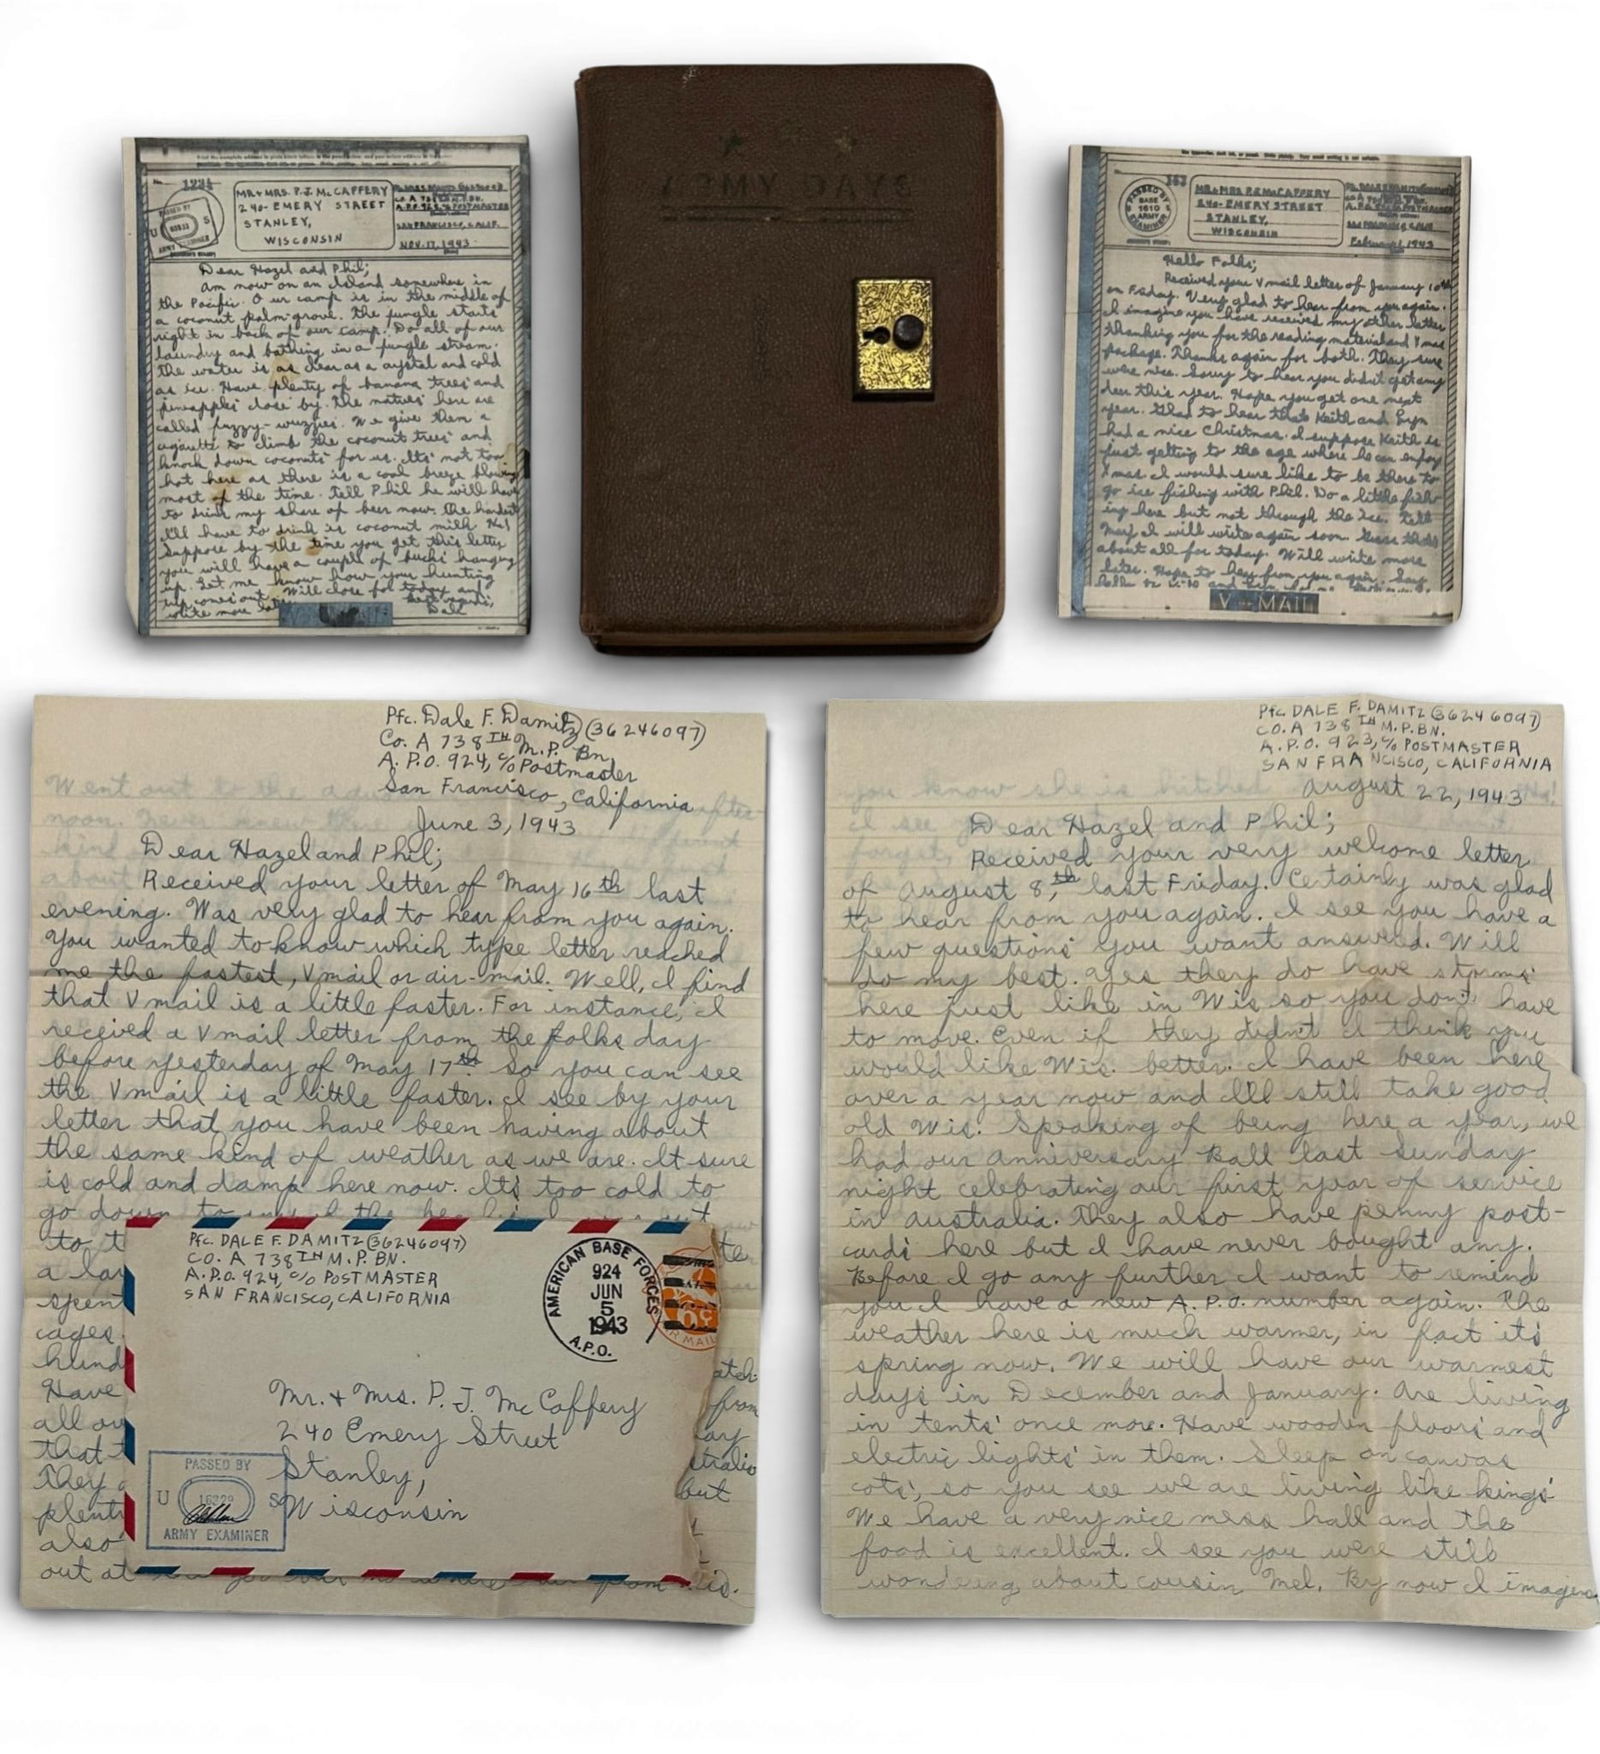 1224
MR & MRS. P. J. McCAFFERY
240 - EMERY STREET
STANLEY,
WISCONSIN
SAN FRANCISCO, CALIF.
NOV. 17, 1943
PASSED BY
U S
ARMY EXAMINER
Dear Hazel and Phil;
Am now on an Island somewhere in
the Pacific. Our camp is in the middle of
a coconut palm-grove. The jungle starts
right in back of our camp. Do all of our
laundry and bathing in a jungle stream.
the water is as clear as a crystal and cold
as ice. Have plenty of banana trees and
pineapples close by. The natives here are
called fuzzy-wuzzies. We give them a
cigarette to climb the coconut trees and
knock down coconuts for us. Its' not too
hot here as there is a cool breeze blowing
most of the time. Tell Phil he will have
to drink my share of beer now. the hardest
I'll have to drink is coconut milk Ha!
Suppose by the time you get this letter
you will have a couple of bucks hanging
up. Let me know how your hunting
trip comes out. Will close for today and
write more later. Best regards,
Dale
ARMY
353
PASSED BY
BASE
1610
ARMY
EXAMINER
MR & MRS. P. J. McCAFFERY
240 - EMERY STREET
STANLEY,
WISCONSIN
February 1943
Hello Folks;
Received your V mail letter of January 10th
on Friday. Very glad to hear from you again.
I imagine you have received my other letter
thanking you for the reading material and Xmas
package. Thanks again for both. They sure
were nice. Sorry to hear you didn't get any
deer this year. Hope you get one next
year. Glad to hear that Keith and
had a nice Christmas. I suppose Keith is
just getting to the age where he can enjoy
Xmas. I would sure like to be there to
go ice fishing with Phil. Do a little fish-
ing here but not through the Ice. Tell
Mary I will write again soon. Guess that's
about all for today. Will write more
later. Hope to hear from you again. Say
hello to
V - MAIL
Pfc. Dale F. Damitz (36246097)
Co. A 738TH M.P. Bn
A.P.O. 924, c/o Postmaster
San Francisco, California
June 3, 1943
Dear Hazel and Phil;
Received your letter of May 16th last
evening. Was very glad to hear from you again.
You wanted to know which type letter reached
me the fastest, V mail or air-mail. Well, I find
that V mail is a little faster. For instance, I
received a V mail letter from the folks day
before yesterday of May 17th. So you can see
the V mail is a little faster. I see by your
letter that you have been having about
the same kind of weather as we are. It sure
is cold and damp here now. Its' too cold to
go down to
to t
a lar
spent
cages.
hund
Have
all ou
that t
They
plenty
also
out at
Pfc. DALE F. DAMITZ (36246097)
CO. A 738TH M.P. BN.
A.P.O. 924, c/o POSTMASTER
SAN FRANCISCO, CALIFORNIA
AMERICAN BASE FORCES
924
JUN
5
1943
A.P.O.
Mr. & Mrs. P. J. McCaffery
240 Emery Street
Stanley,
Wisconsin
PASSED BY
U S
ARMY EXAMINER
Pfc. DALE F. DAMITZ (36246097)
CO. A 738TH M.P. BN.
A.P.O. 923, c/o POSTMASTER
SAN FRANCISCO, CALIFORNIA
August 22, 1943
Dear Hazel and Phil;
Received your very welcome letter
of August 8,th last Friday. Certainly was glad
to hear from you again. I see you have a
few questions' you want answered. Will
do my best. Yes they do have storms'
here just like in Wis so you don't have
to move. Even if they didn't I think you
would like Wis. better. I have been here
over a year now and I'll still take good
old Wis. Speaking of being here a year, we
had our anniversary Ball last Sunday
night celebrating our first year of service
in Australia. They also have penny post-
cards' here but I have never bought any.
Before I go any further I want to remind
you I have a new A.P.O. number again. The
weather here is much warmer, in fact its'
spring now. We will have our warmest
days in December and January. Are living
in tents' once more. Have wooden floors' and
electric lights' in them. Sleep on canvas
cots', so you see we are living like kings'.
We have a very nice mess hall and the
food is excellent. I see you were still
wondering about cousin Mel. By now I imagine